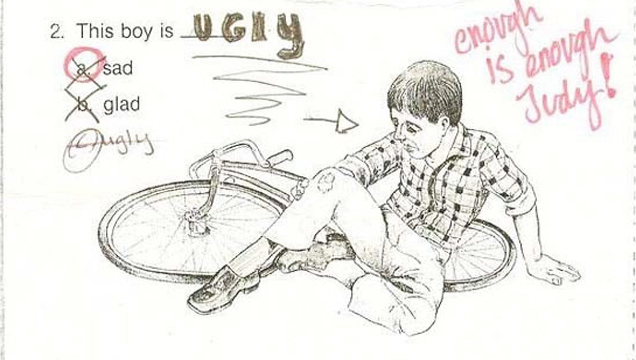 2. This boy is UGly
a. sad
b. glad
c ugly
enough
is enough
Judy!